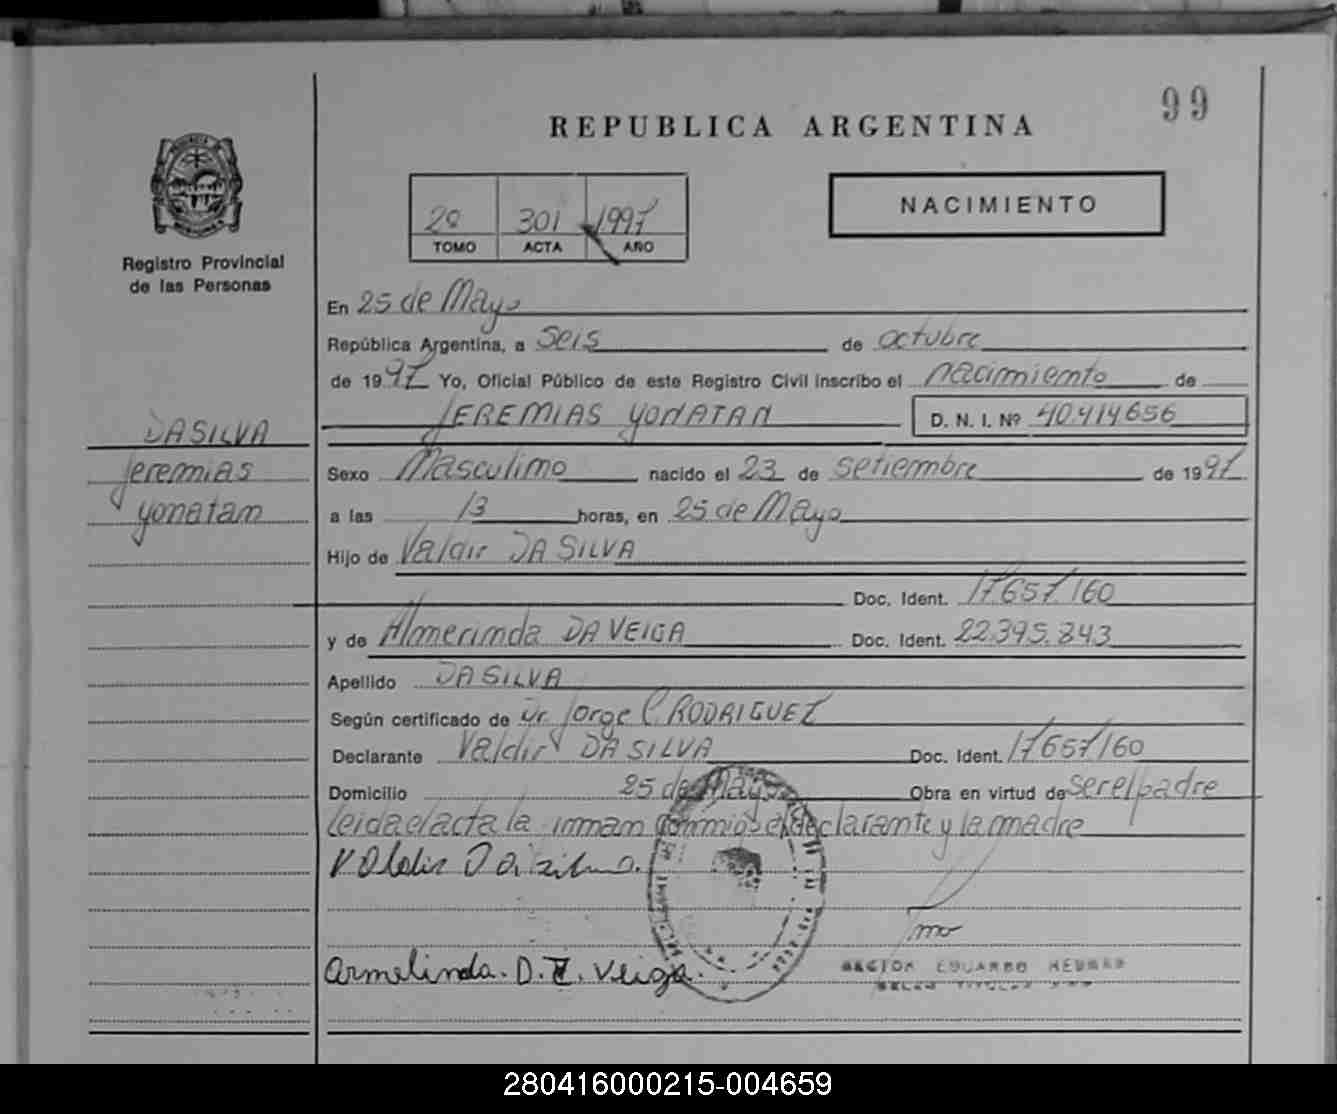 99
REPUBLICA ARGENTINA
2º 301 1997
TOMO ACTA AÑO
NACIMIENTO
Registro Provincial
de las Personas
En 25 de Mayo
República Argentina, a seis de octubre
de 1997 Yo, Oficial Público de este Registro Civil inscribo el nacimiento de
JEREMIAS YONATAN D. N. I. Nº 40.414656
DASILVA
Jeremias
yonatan
Sexo Masculino nacido el 23 de setiembre de 1997
a las 13 horas, en 25 de Mayo
Hijo de Valdir DA SILVA
Doc. Ident. 17657160
y de Almerinda DA VEIGA Doc. Ident. 22.395.843
Apellido DA SILVA
Según certificado de Dr. Jorge C. RODRIGUEZ
Declarante Valdir DA SILVA Doc. Ident. 17657160
Domicilio 25 de Mayo Obra en virtud de ser el padre
leida el acta la firman conmigo el declarante y la madre
Valdir Da silva.
Armelinda. D. Veiga.
280416000215-004659